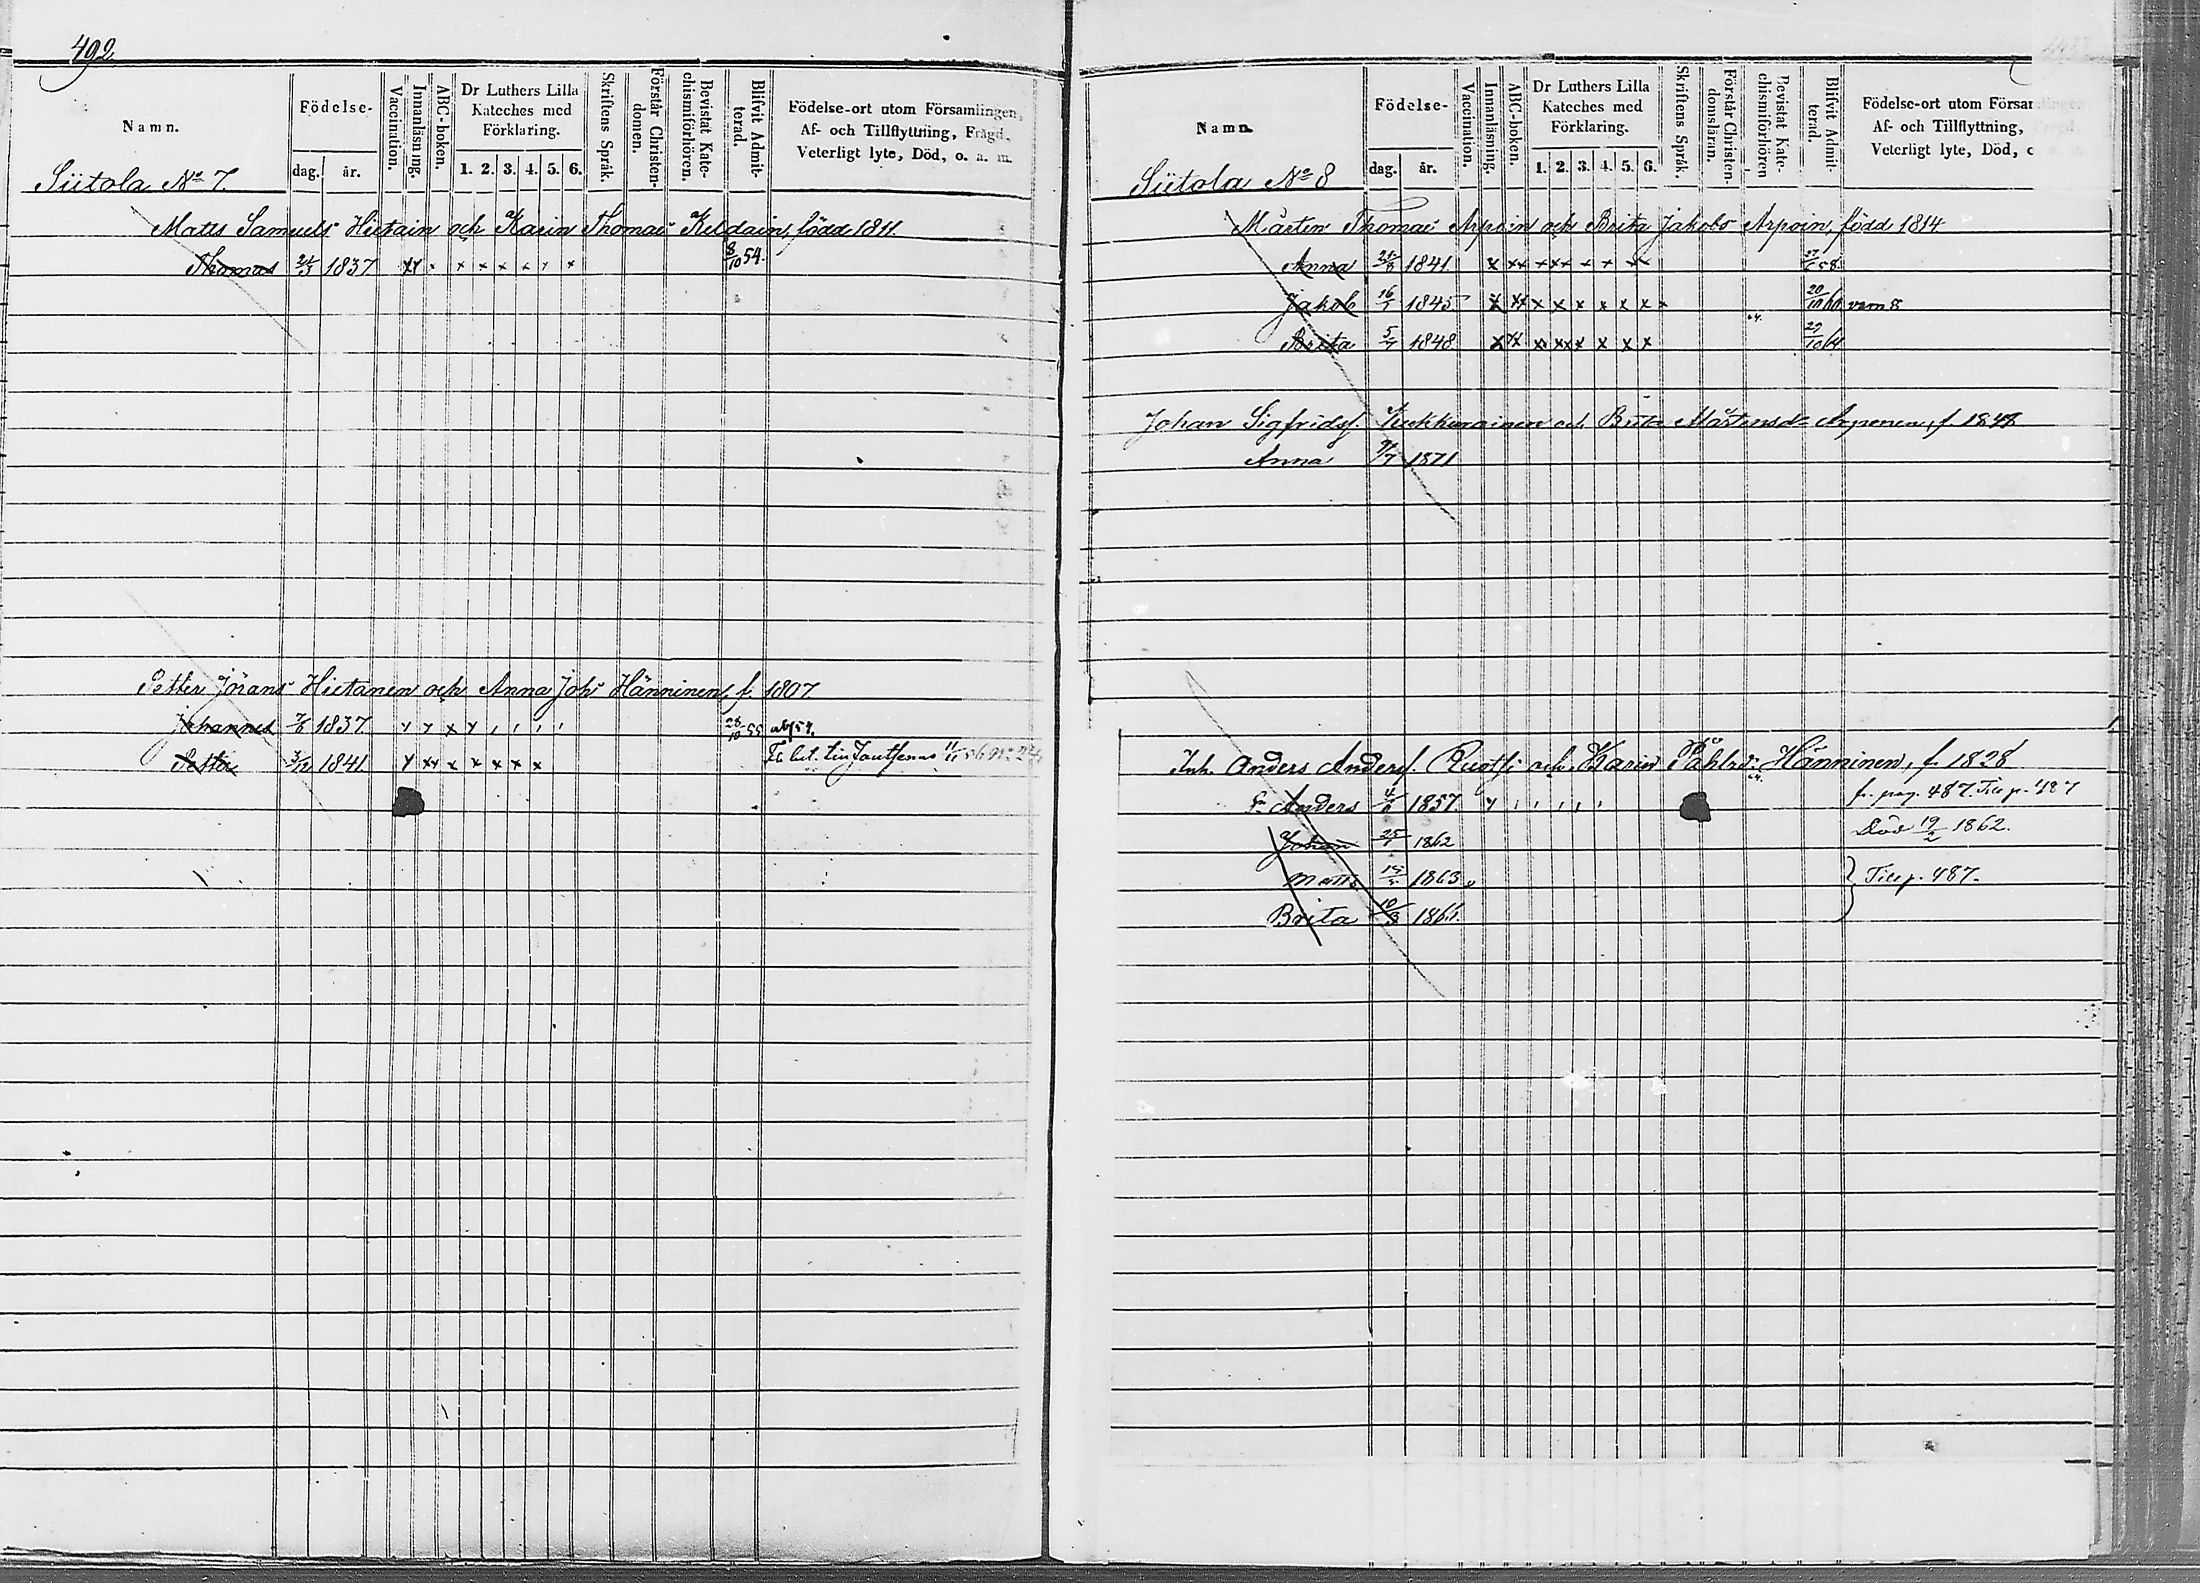 492
Namn.
Födelse-
dag. år.
Vaccination.
Innanläsning.
ABC-boken.
Dr Luthers Lilla Kateches med Förklaring.
1. 2. 3. 4. 5. 6.
Skriftens Språk.
Förstår Christendomen.
Bevistat Katechismiförhören.
Blifvit Admitterad.
Födelse-ort utom Församlingen,
Af- och Tillflyttning, Frägd,
Veterligt lyte, Död, o. a. m.
Siitola No 7.
Matts Samuels Hietain och Karin Thomas Keldain, född 1811.
Thomas 1837 x x x x x x x 8/10 54.
Petter Jörans Hietanen och Anna Johs Hänninen, f. 1807
Johannes 7/6 1837 28/10 55
Petter 3/12 1841 x xx x x x x x
Namn.
Födelse-
dag. år.
Vaccination.
Innanläsning.
ABC-boken.
Dr Luthers Lilla Kateches med Förklaring.
1. 2. 3. 4. 5. 6.
Skriftens Språk.
Förstår Christendomsläran.
Bevistat Katechismiförhören
Blifvit Admitterad.
Födelse-ort utom Försam
Af- och Tillflyttning,
Veterligt lyte, Död,
Siitola No 8
Mårten Thomas Arpoin och Brita Jakobs Arpoin, född 1814
Anna 1841 x xx x xx x x xx 58
Jakob 16/7 1845 x xx x x x x x x x 20/10
Brita 1848 x xx xx xxx x x x 29/10 64
Johan Sigfridsf. Kukkurainen och Brita Mårtensd. Arponen, f. 1848
Anna 9/7 1871
Inh. Anders Andersf. Ruotsi och Karin Påhlsd. Hänninen, f. 1828
Anders 1857 fr. pag. 487. Till p. 487
Johan 25/1 1862 Död 19/2 1862.
Matts 1863 } Till p. 487.
Brita 10/3 1866.